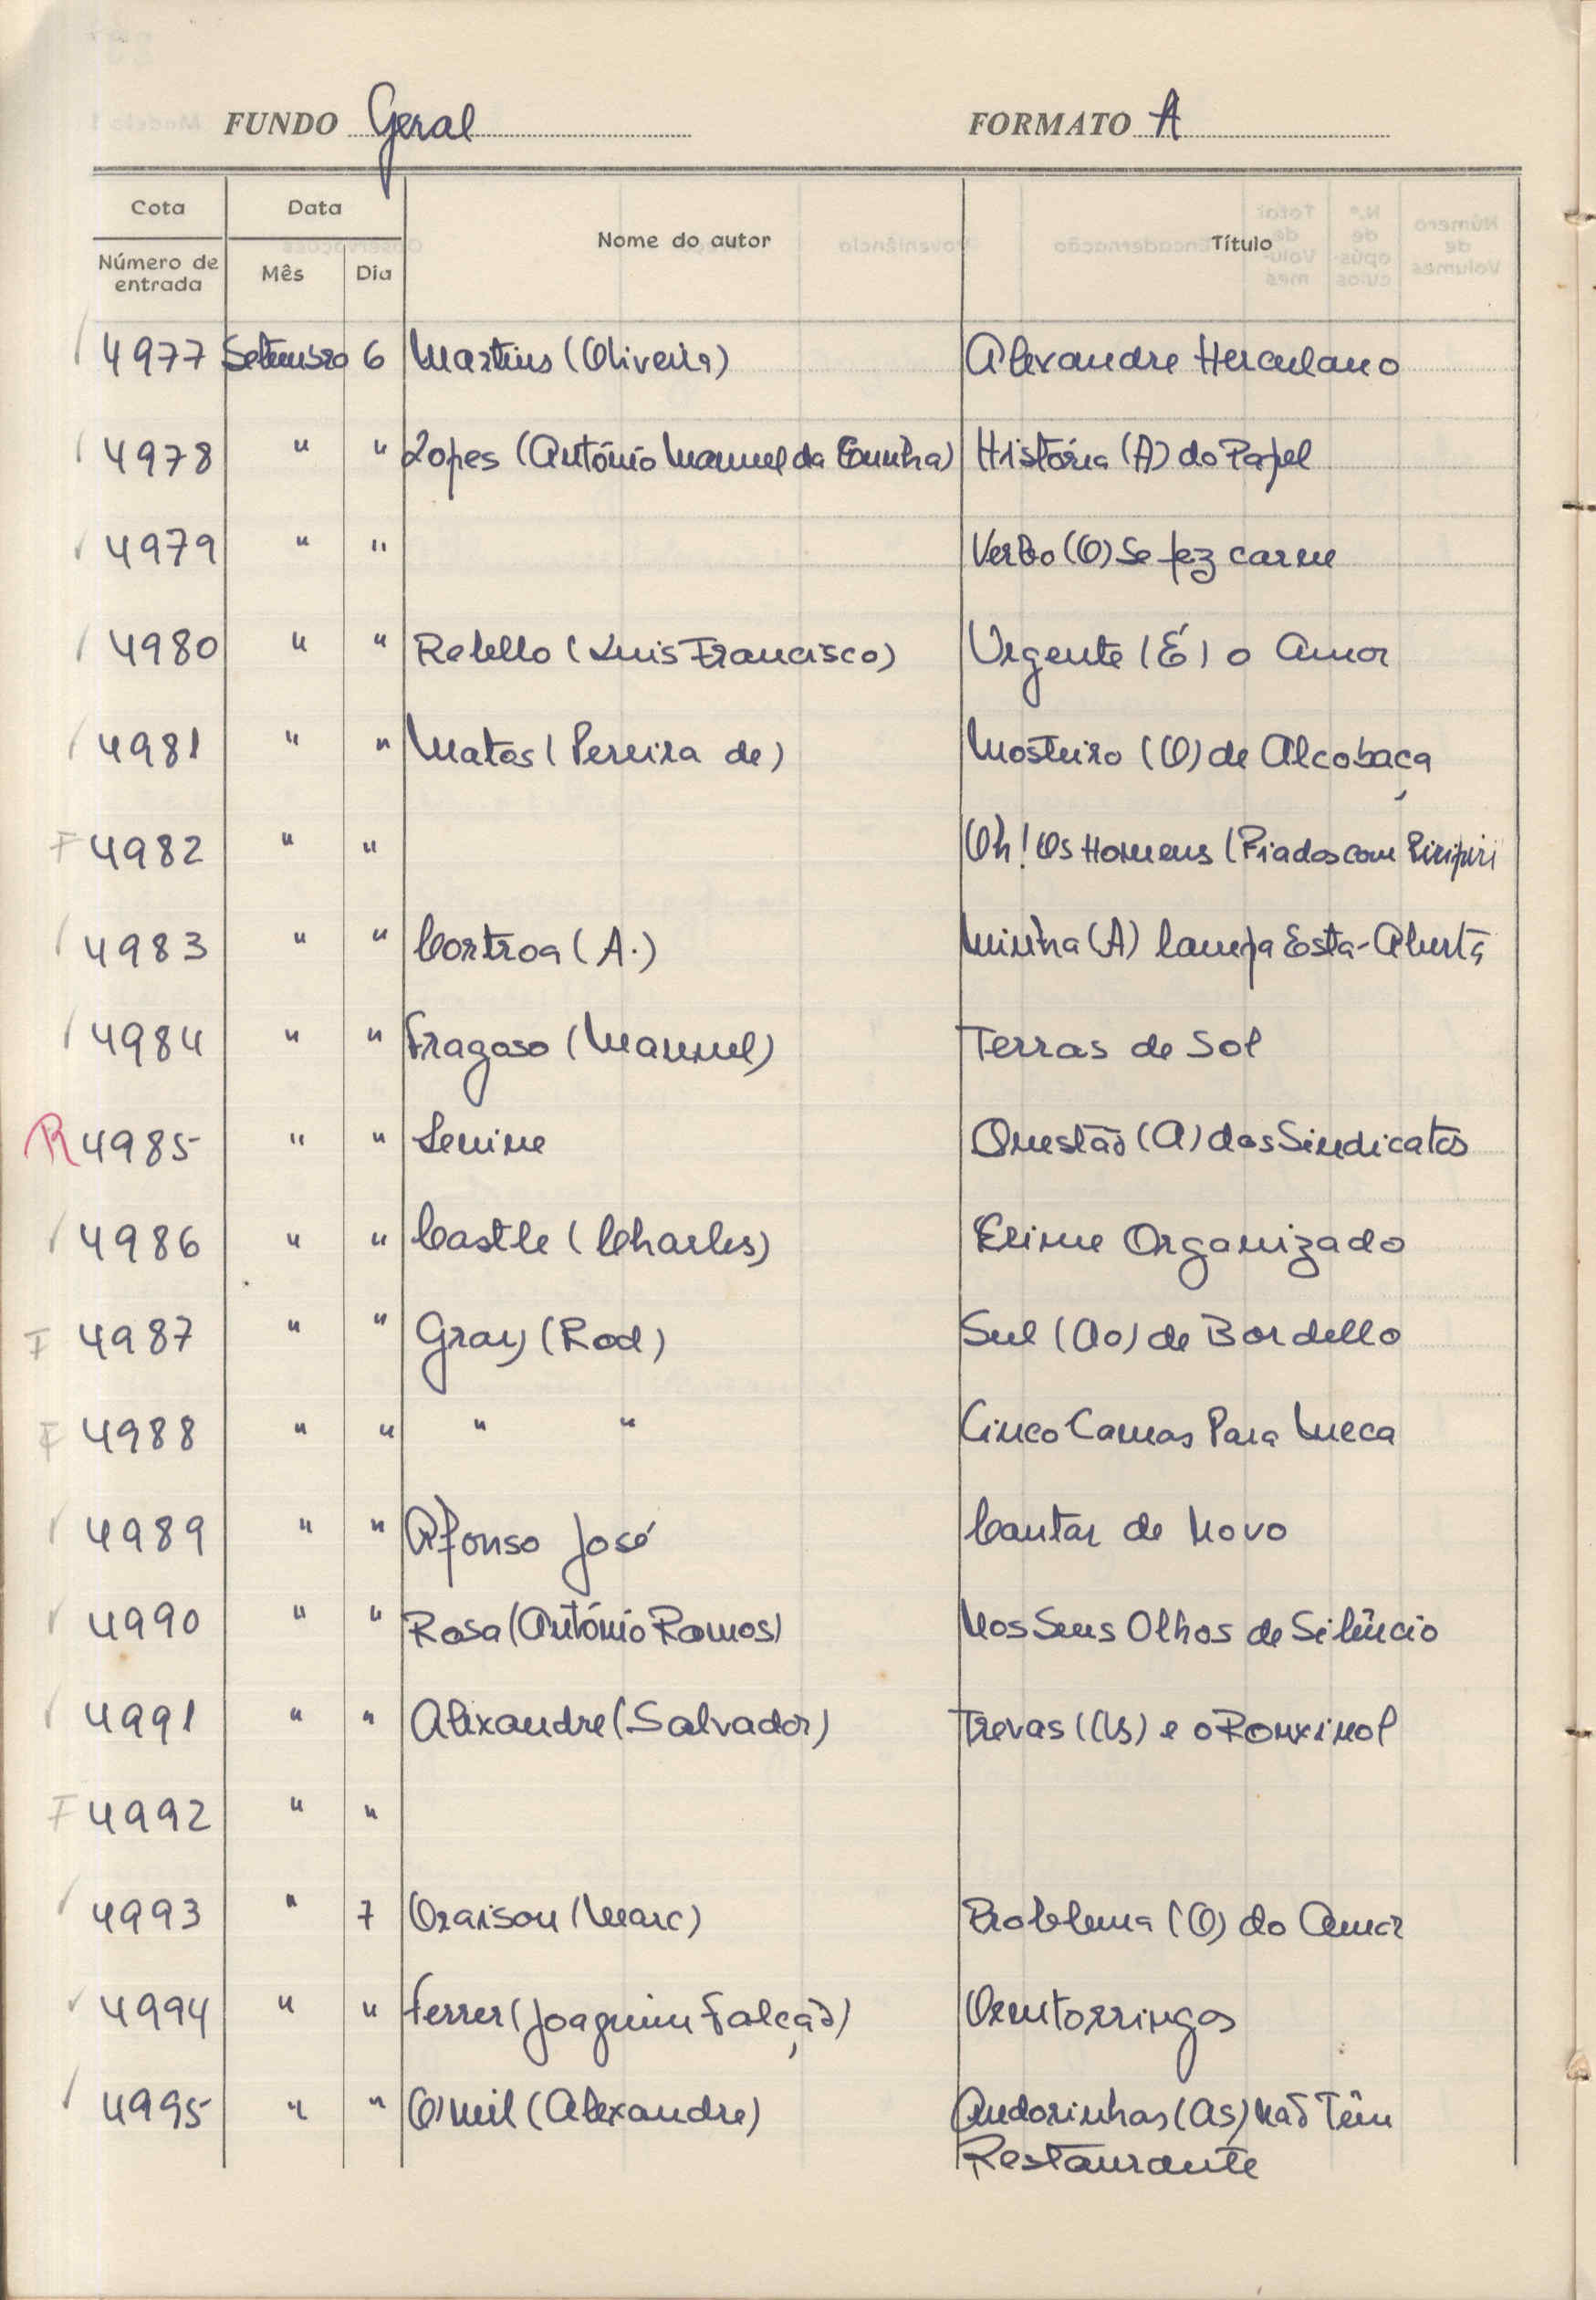 FUNDO Geral FORMATO A
Cota Data Nome do autor Título
Número de entrada Mês Dia
4977 Setembro 6 Martins (Oliveira) Alexandre Herculano
4978 " " Lopes (António Manuel da Cunha) História (A) do Papel
4979 " " Verbo (O) Se fez carne
4980 " " Rebello (Luis Francisco) Urgente (É) o Amor
4981 " " Matos (Pereira de) Mosteiro (O) de Alcobaça
F 4982 " " Oh! Os Homens (Piadas com Piripiri
4983 " " Cortroa (A.) Minha (A) Campa Esta-Aberta
4984 " " Fragoso (Manuel) Terras de Sol
R 4985 " " Lenine Questão (A) dos Sindicatos
4986 " " Castle (Charles) Crime Organizado
F 4987 " " Gray (Rod) Sul (Ao) de Bordello
F 4988 " " " " Cinco Camas Para Meca
4989 " " Afonso José Cantar de Novo
4990 " " Rosa (António Ramos) Nos Seus Olhos de Silêncio
4991 " " Alixandre (Salvador) Trevas (As) e o Rouxinol
F 4992 " "
4993 " 7 Oraison (Marc) Problema (O) do Amor
4994 " " Ferrer (Joaquim Falcão) Ornitorringos
4995 " " O'neil (Alexandre) Andorinhas (As) Não Têm
Restaurante